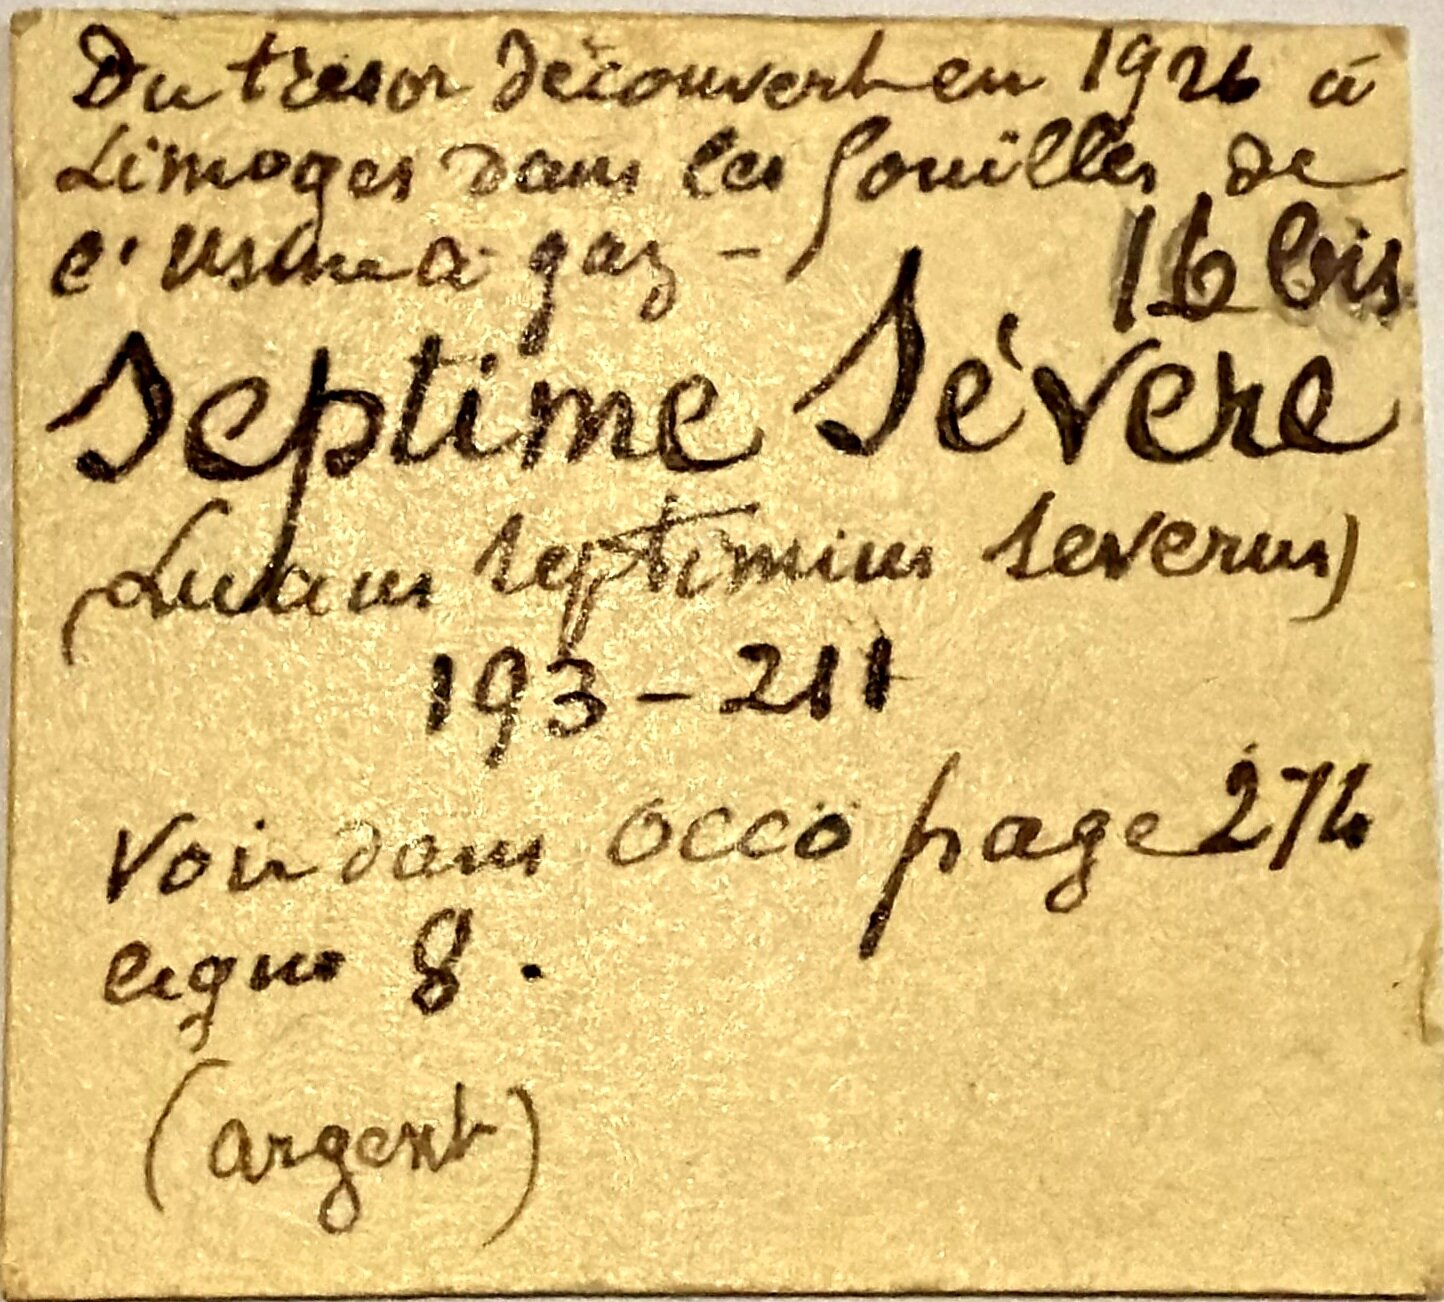 Du trésor découvert en 1926 à
Limoges dans les fouilles de
l'usine à gaz -
16 bis
Septime Sévère
(Lucius Septimius Severus)
193-211
Voir dans OCCO page 274
ligne 8.
(argent)